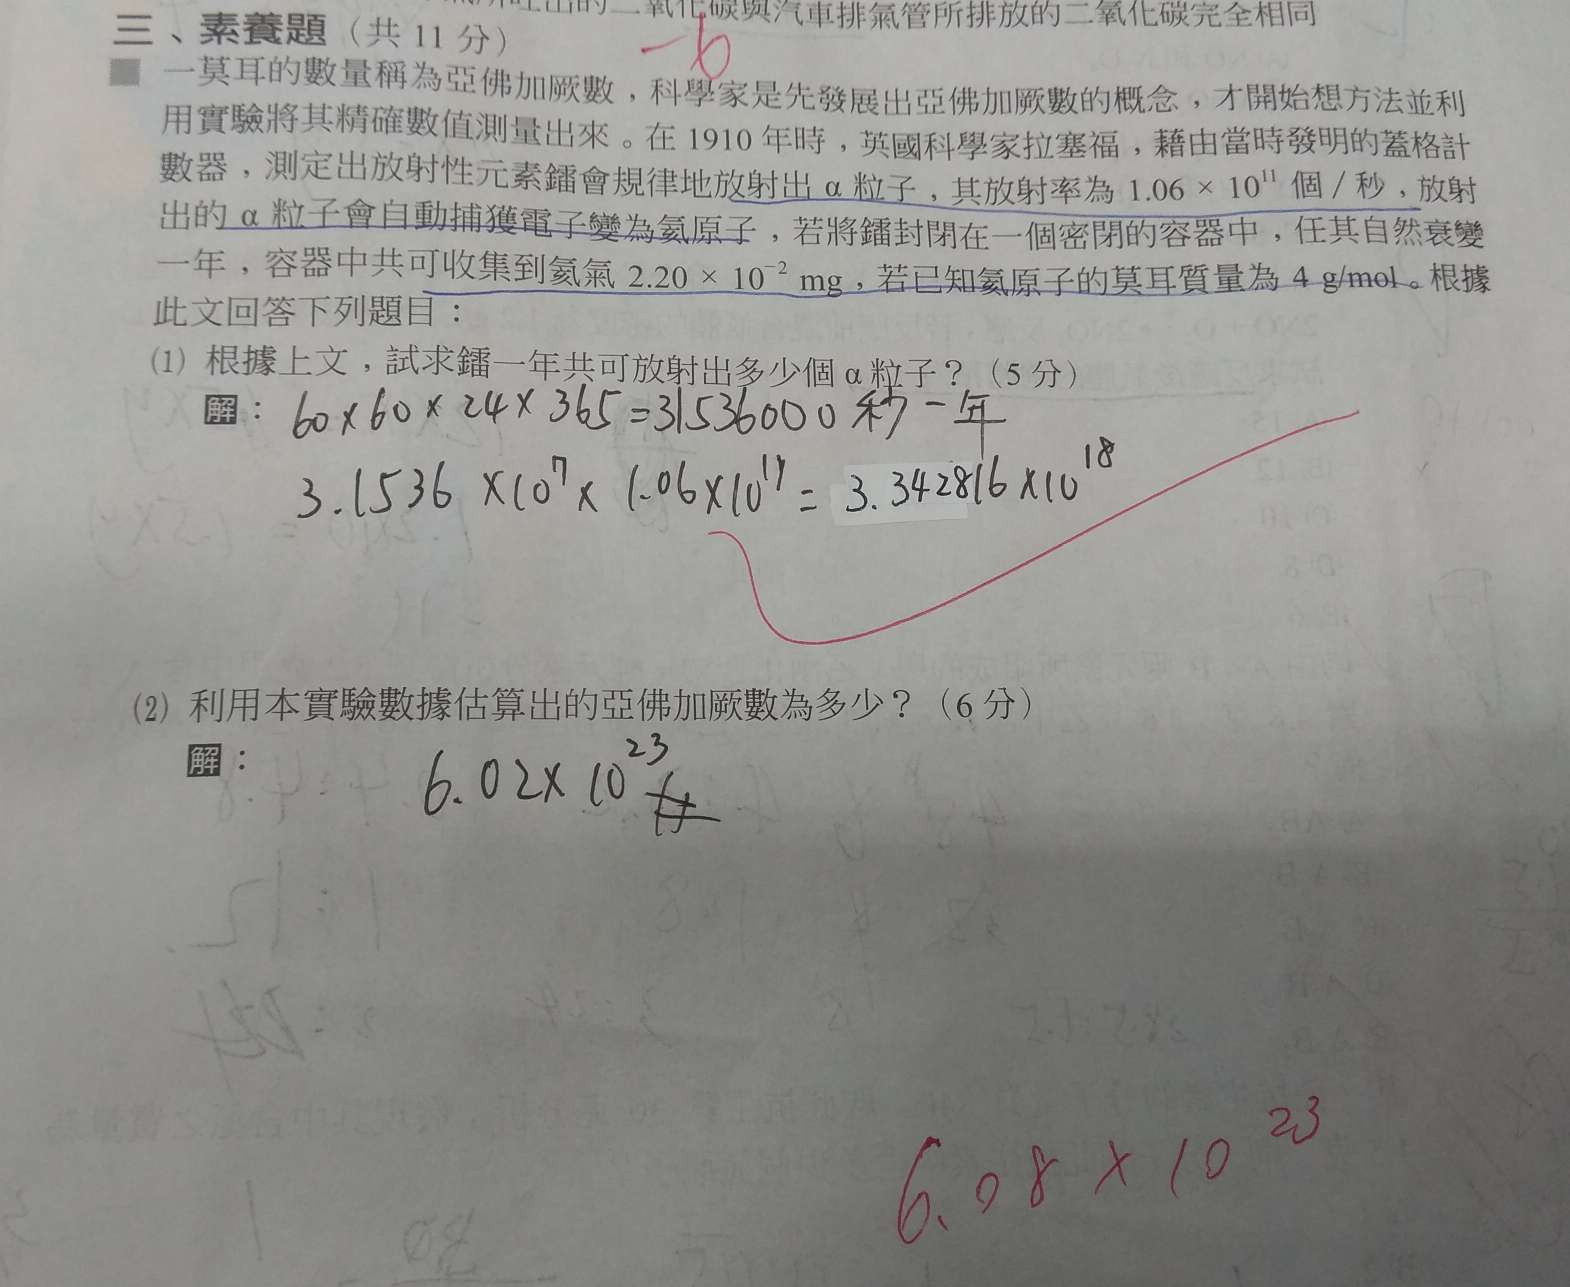 氧化碳與汽車排氣管所排放的二氧化碳完全相同
三、素養題（共 11 分）
-6
一莫耳的數量稱為亞佛加厥數，科學家是先發展出亞佛加厥數的概念，才開始想方法並利
用實驗將其精確數值測量出來。在 1910 年時，英國科學家拉塞福，藉由當時發明的蓋格計
數器，測定出放射性元素鐳會規律地放射出 α 粒子，其放射率為 1.06 × 10¹¹ 個 / 秒，放射
出的 α 粒子會自動捕獲電子變為氦原子，若將鐳封閉在一個密閉的容器中，任其自然衰變
一年，容器中共可收集到氦氣 2.20 × 10⁻² mg，若已知氦原子的莫耳質量為 4 g/mol。根據
此文回答下列題目：
(1) 根據上文，試求鐳一年共可放射出多少個 α 粒子？（5 分）
解： 60×60×24×365=31536000 秒一年
3.1536 ×10⁷× 1.06×10¹¹ = 3.342816×10¹⁸
(2) 利用本實驗數據估算出的亞佛加厥數為多少？（6 分）
解： 6.02×10²³
6.08×10²³